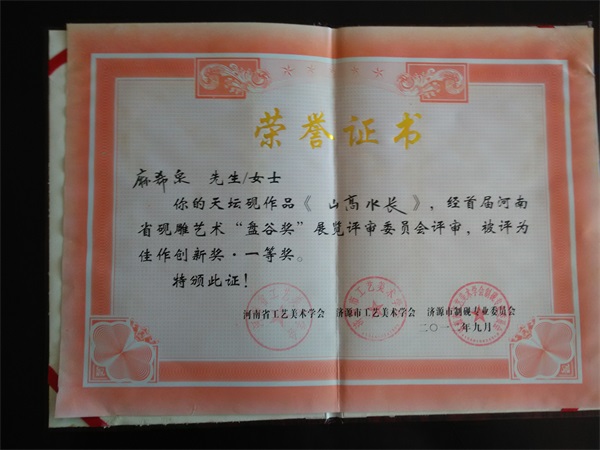 荣誉证书
麻希泉 先生/女士
你的天坛砚作品《 山高水长 》，经首届河南
省砚雕艺术“盘谷奖”展览评审委员会评审，被评为
佳作创新奖·一等奖。
特颁此证！
河南省工艺美术学会 济源市工艺美术学会 济源市制砚专业委员会
二〇一二年九月